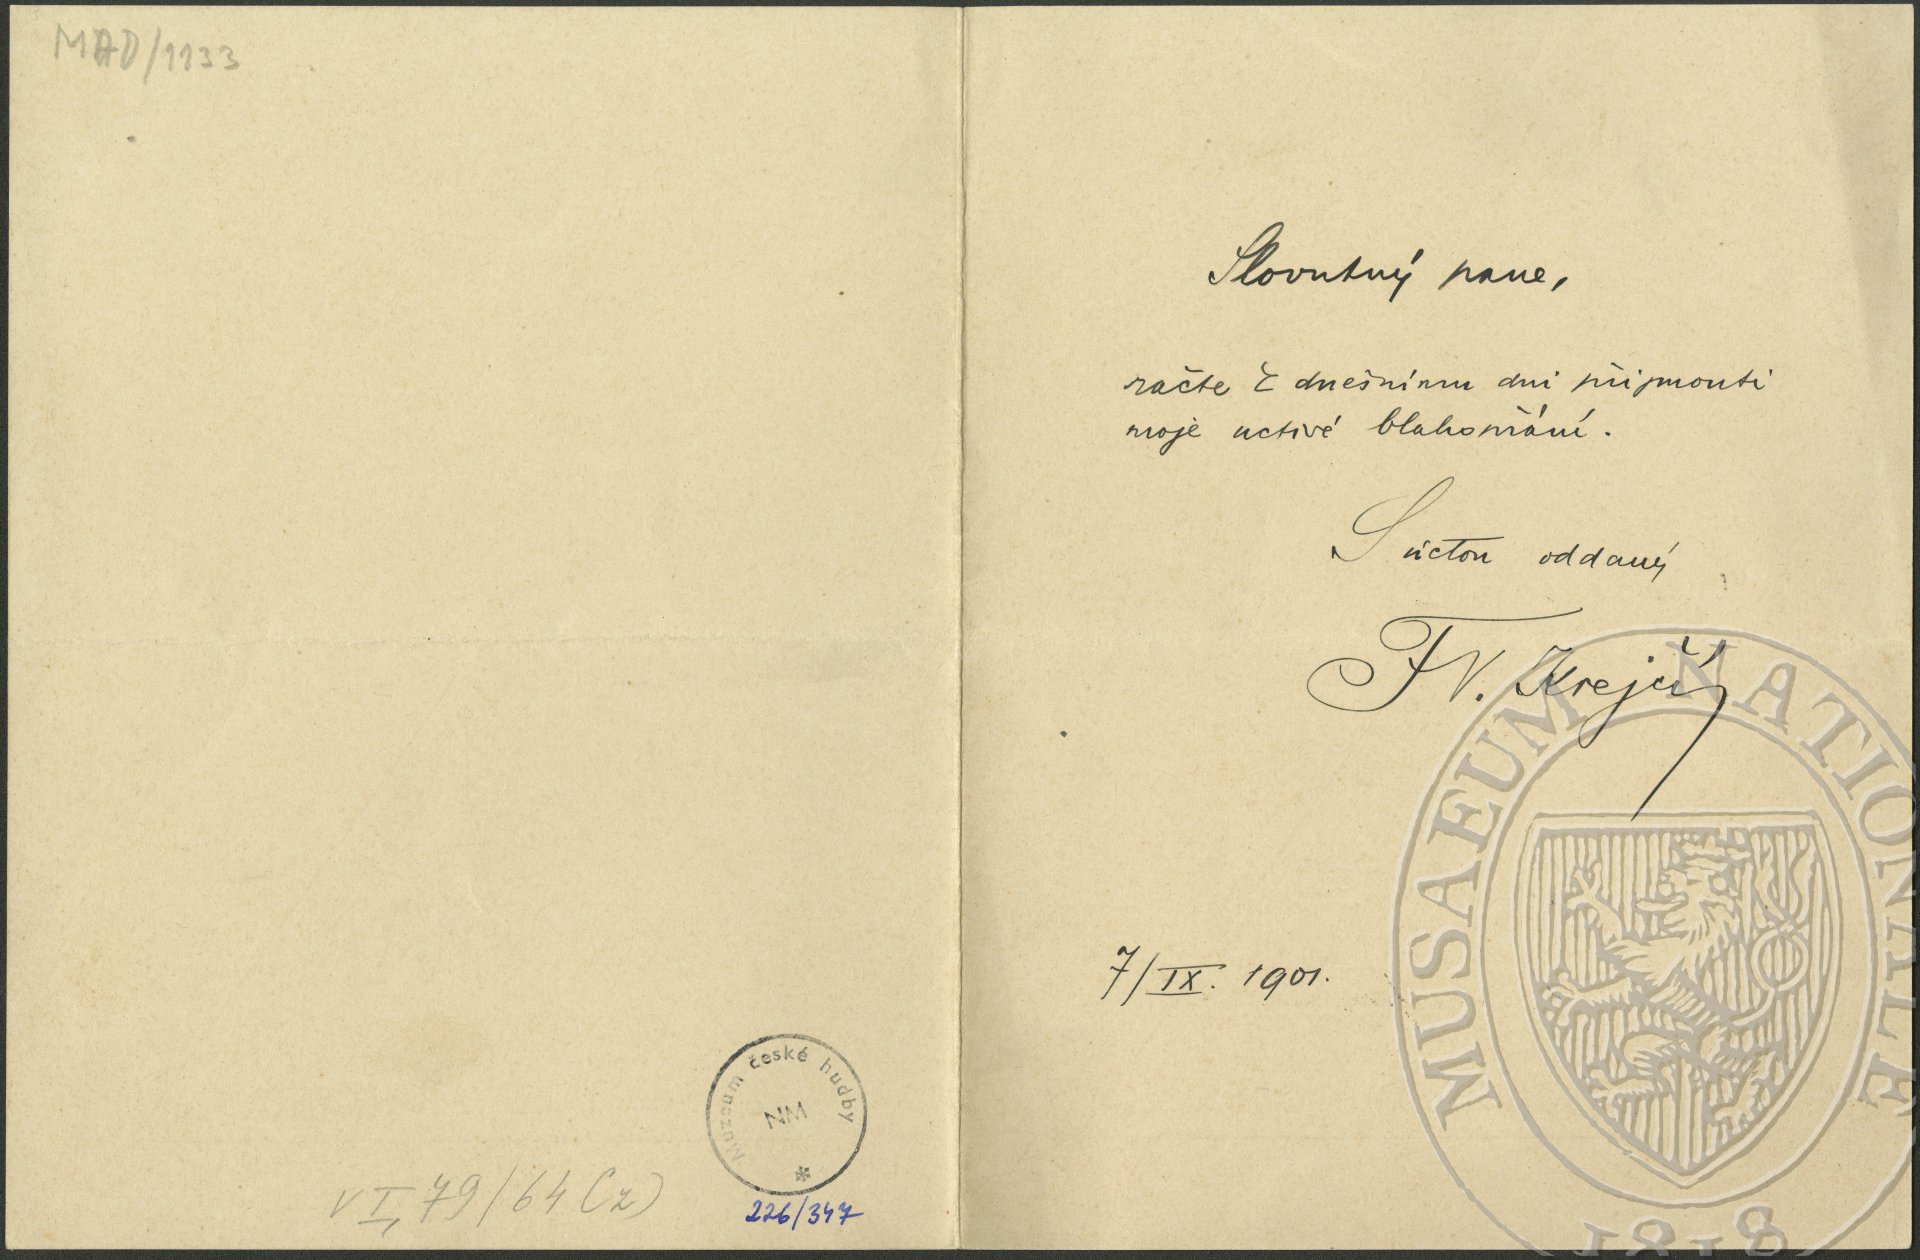 MAD/1133
Slovutný pane,
račte k dnešnímu dni přijmouti
moje uctivé blahopřání.
S úctou oddaný
FV. Krejčí
7/IX. 1901.
Muzeum české hudby
NM
226/347
VI, 79/64 (2)
MUSAEUM NATIONALE
1818